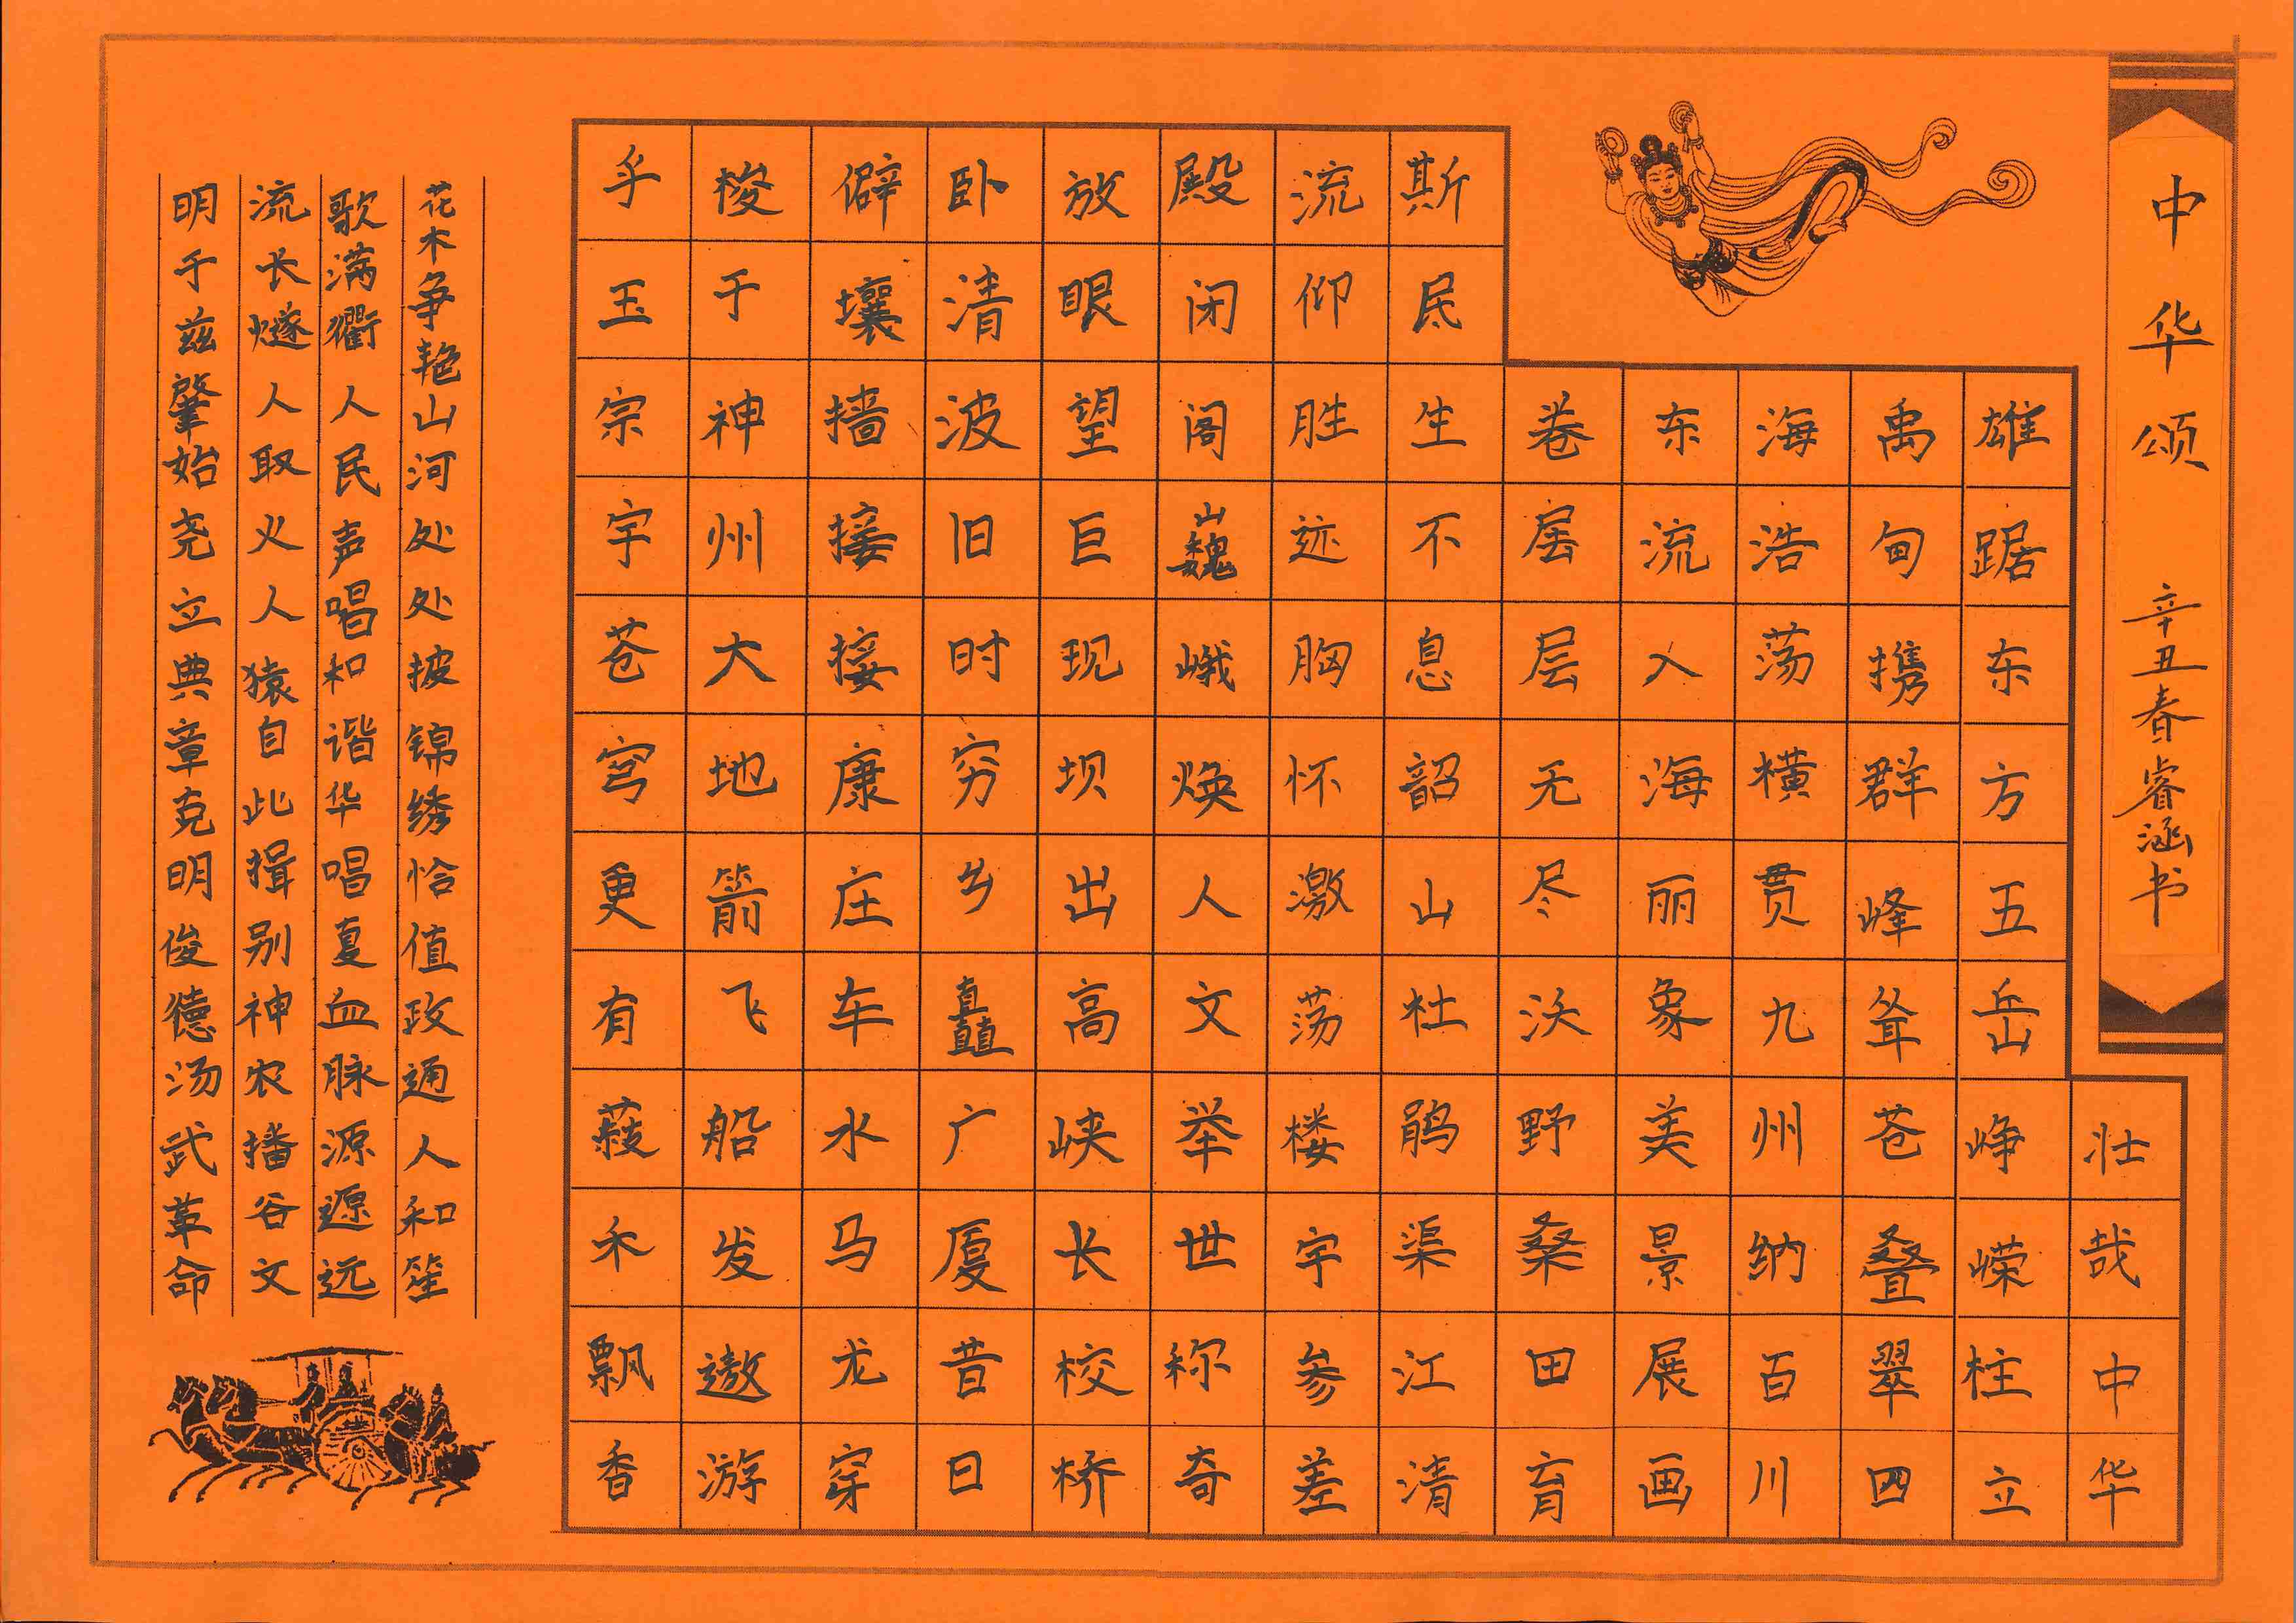 中华颂 辛丑春睿涵书
壮哉中华
雄踞东方五岳峥嵘柱立
禹甸携群峰耸苍叠翠四
海浩荡横贯九州纳百川
东流入海丽象美景展画
卷层层无尽沃野桑田育
斯民生不息韶山杜鹃渠江清
流仰胜迹胸怀激荡楼宇参差
殿闭阁巍峨焕人文举世称奇
放眼望巨现坝出高峡长校桥
卧清波旧时穷乡矗广厦昔日
僻壤墙接接康庄车水马龙穿
梭于神州大地箭飞船发遨游
乎玉宗宇苍穹更有菽禾飘香
花木争艳山河处处披锦绣恰值政通人和笙
歌满衢人民声唱和谐华唱夏血脉源远
流长燧人取火人猿自此揖别神农播谷文
明于兹肇始尧立典章克明俊德汤武革命